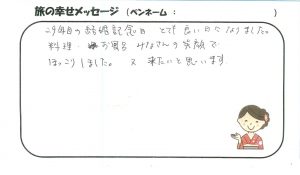 旅の幸せメッセージ (ペンネーム： )
29年目の結婚記念日 とても良い日になりました。
料理・お風呂 みなさんの笑顔で
ほっこりしました。又 来たいと思います。